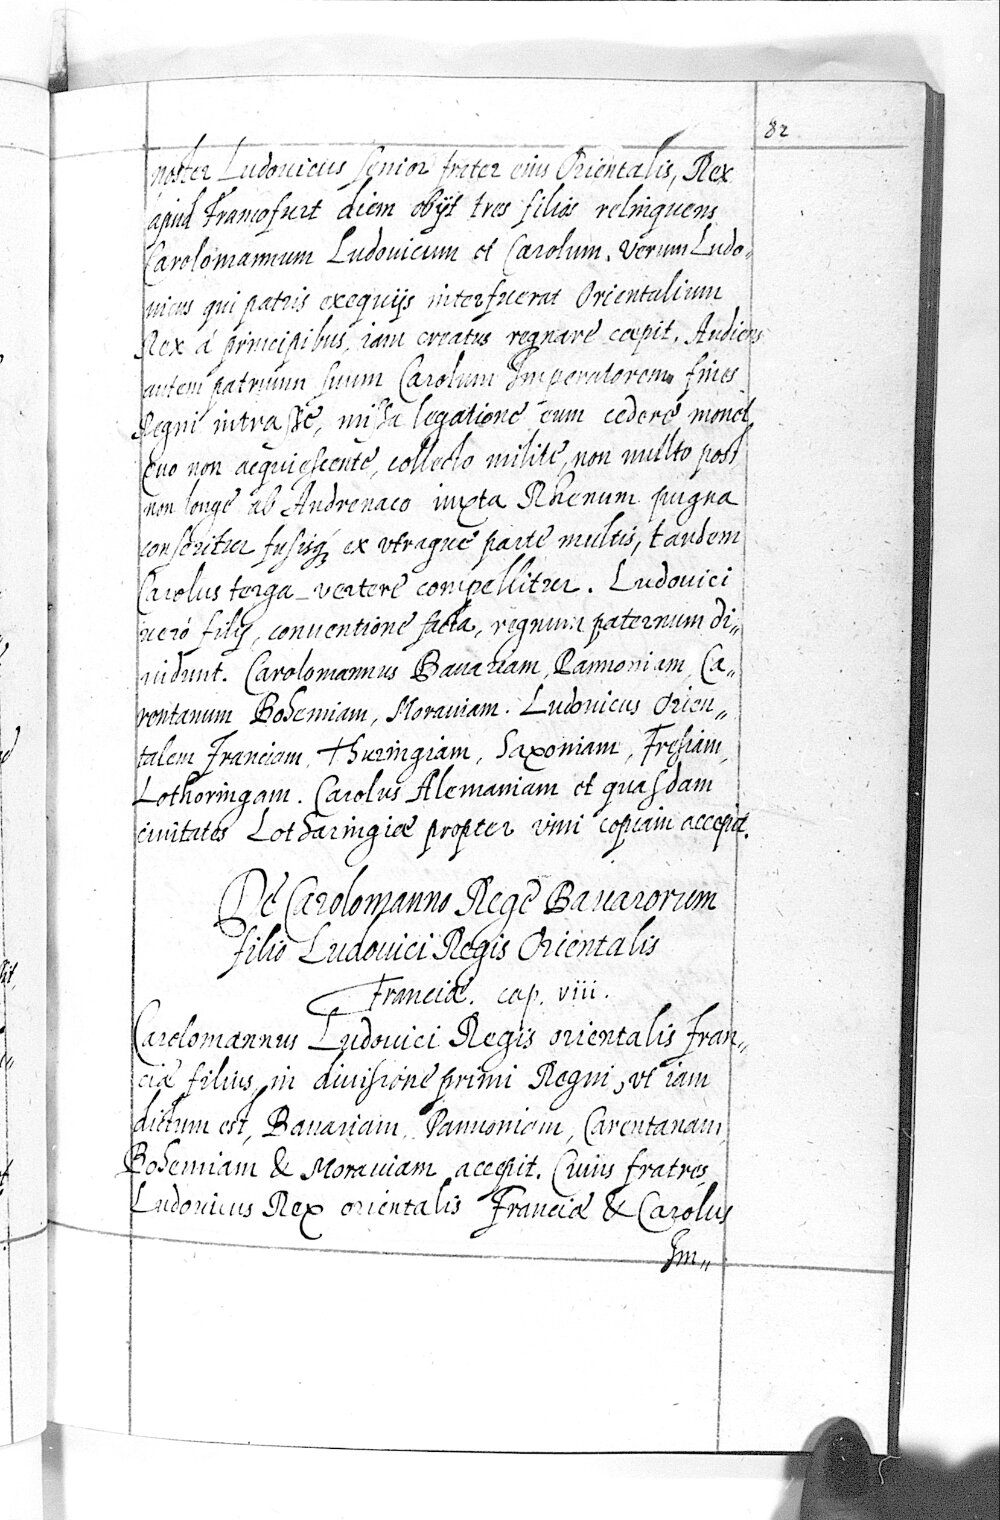 82
noster Ludouicus senior frater eius Orientalis, Rex
apud Francofurt diem obijt tres filios relinquens
Carolomannum Ludouicum et Carolum. Verum Ludo„
uicus qui patris exequijs interfuerat Orientalium
Rex á principibus, iam creatus regnare cœpit. Audiens
autem patruum suum Carolum Imperatorem fines
Regni intrasse, missa legatione eum cedere monet
quo non acquiescente, collecto milite, non multo post
non longe ab Andrenaco iuxta Rhenum pugna
conseritur fusisq́ ex vtraque parte multis, tandem
Carolus terga vertere compellitur. Ludouici
veró filij, conuentione facta, regnum paternum di„
uidunt. Carolomannus Bauariam, Pannoniam, Ca„
rentanum Bohemiam, Morauiam. Ludouicus Orien„
talem Franciam, Thuringiam, Saxoniam, Fresiam,
Lothoringam. Carolus Alemaniam et quasdam
ciuitates Lotharingiæ propter vini copiam accepit.
De Carolomanno Rege Bauarorum
filio Ludouici Regis Orientalis
Franciæ. cap. viii.
Carolomannus Ludouici Regis orientalis Fran„
ciæ filius, in diuisione primi Regni, vt iam
dictum est, Bauariam, Pannoniam, Carentanam,
Bohemiam & Morauiam accepit. Cuius fratres,
Ludouicus Rex orientalis Franciæ & Carolus
Im„